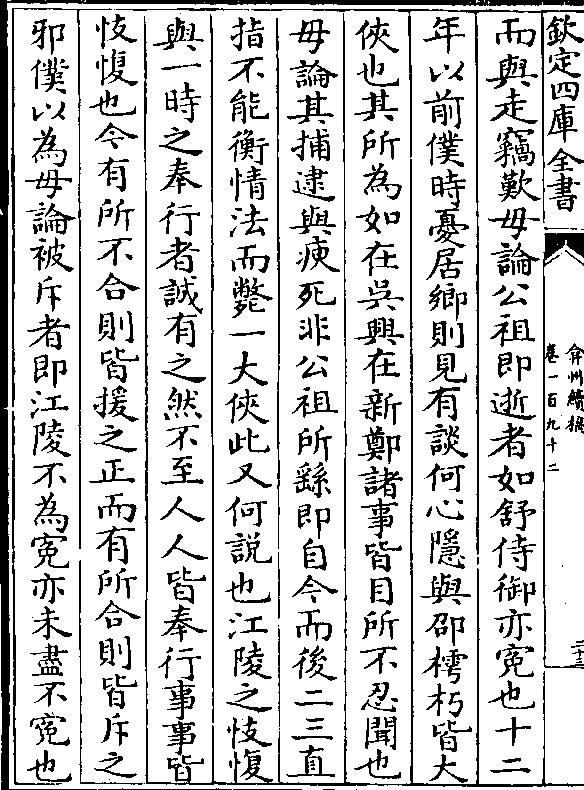 欽定四庫全書
弇州續稿
卷一百九十二
而與走竊歎毋論公祖即逝者如舒侍御亦寃也十二
年以前僕時憂居鄉則見有談何心隱與邵樗朽皆大
俠也其所為如在吳興在新鄭諸事皆目所不忍聞也
毋論其捕逮與瘐死非公祖所繇即自今而後二三直
指不能衡情法而斃一大俠此又何說也江陵之忮愎
與一時之奉行者誠有之然不至人人皆奉行事事皆
忮愎也今有所不合則皆援之正而有所合則皆斥之
邪僕以為毋論被斥者即江陵不為寃亦未盡不寃也